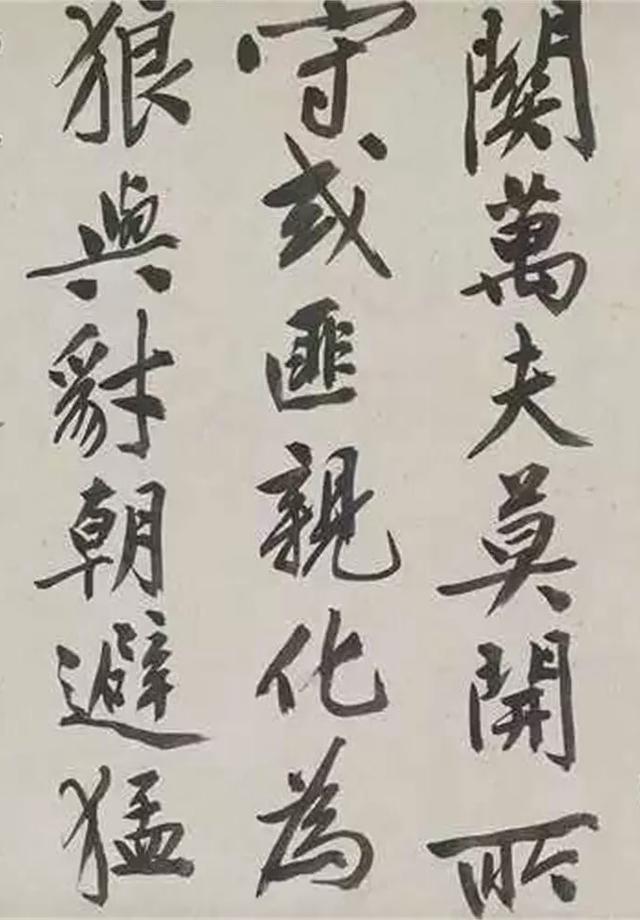 關萬夫莫開所
守或匪親化為
狼與豺朝避猛